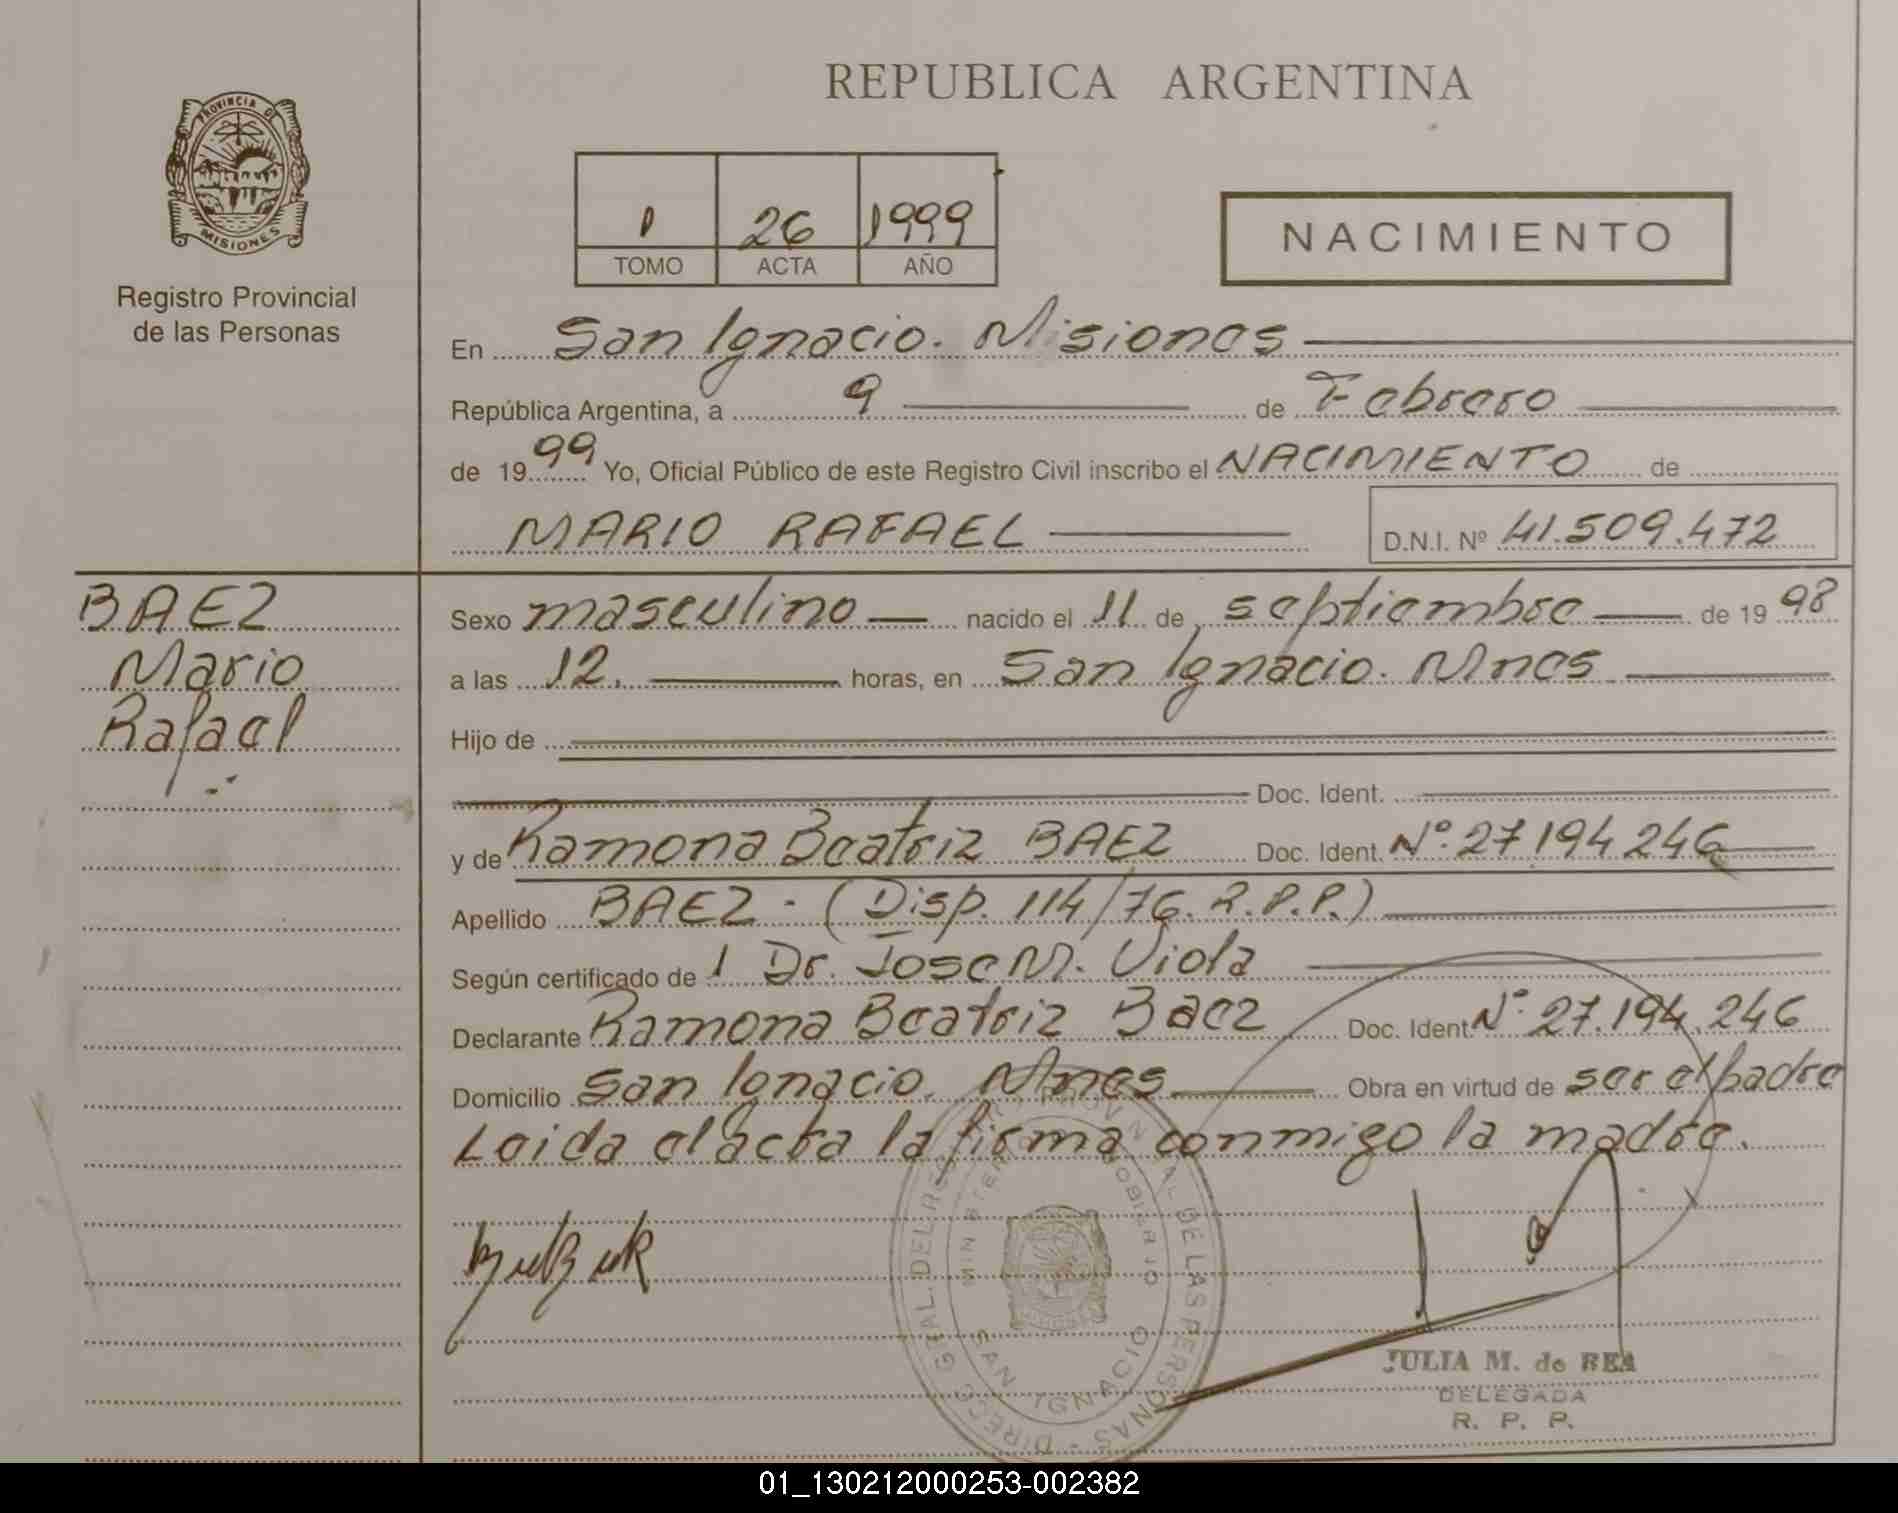 REPUBLICA ARGENTINA
PROVINCIA DE
MISIONES
Registro Provincial
de las Personas
1 26 1999
TOMO ACTA AÑO
NACIMIENTO
En San Ignacio. Misiones
República Argentina, a 9 de Febrero
de 1999 Yo, Oficial Público de este Registro Civil inscribo el NACIMIENTO de
MARIO RAFAEL D.N.I. Nº 41.509.472
BAEZ
Mario
Rafael
Sexo masculino nacido el 11 de septiembre de 1998
a las 12. horas, en San Ignacio. Mnes
Hijo de
Doc. Ident.
y de Ramona Beatriz BAEZ Doc. Ident. Nº. 27 194 246
Apellido BAEZ - (Disp. 114/76. R.P.P.)
Según certificado de 1 Dr. Jose M. Viola
Declarante Ramona Beatriz Baez Doc. Ident. Nº. 27.194.246
Domicilio San Ignacio. Mnes Obra en virtud de ser el padre
Leida el acta la firma conmigo la madre.
DIRECC. GRAL. DEL REG. PROVINCIAL DE LAS PERSONAS
SAN IGNACIO
JULIA M. de REA
DELEGADA
R. P. P.
01_130212000253-002382